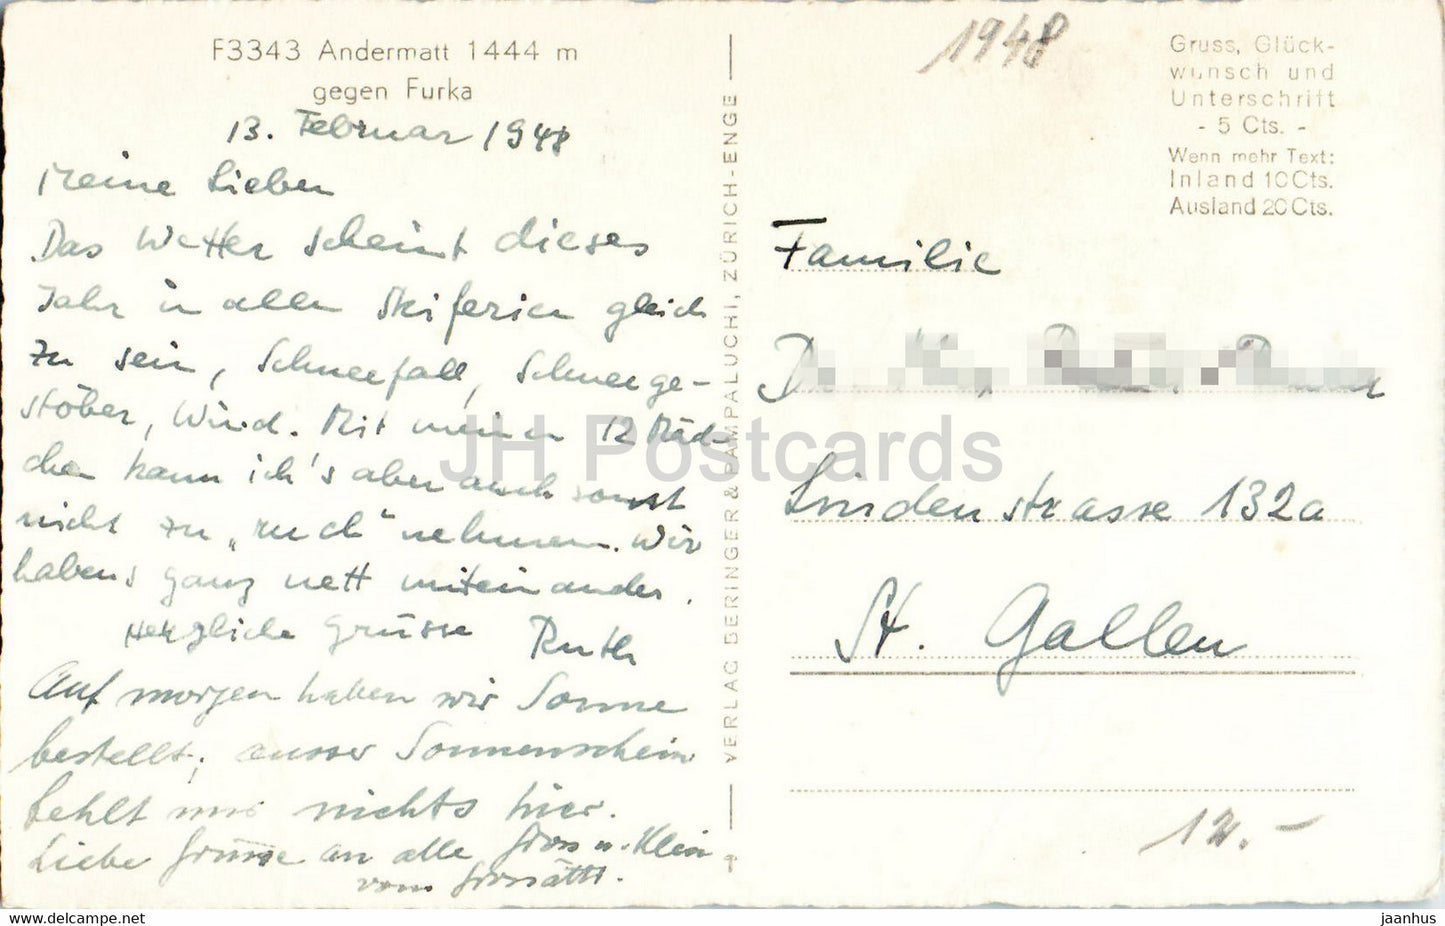 F3343 Andermatt 1444 m
gegen Furka
13. Februar 1948
Meine Lieben
Das Wetter scheint dieses
Jahr in allen Skiferien gleich
zu sein, Schneefall, Schneege-
stöber, Wind. Mit meinen 12 Mäd-
chen kann ich's aber auch sonst
nicht zu „ruch“ nehmen. Wir
habens ganz nett miteinander.
Herzliche Grüsse Ruth
Auf morgen haben wir Sonne
bestellt; ausser Sonnenschein
fehlt mir nichts hier.
Liebe Grüsse an alle Gross u. Klein
vom
VERLAG BERINGER & PAMPALUCHI, ZÜRICH-ENGE
1948
Gruss, Glück-
wunsch und
Unterschrift
- 5 Cts. -
Wenn mehr Text:
Inland 10 Cts.
Ausland 20 Cts.
Familie
Lindenstrasse 132a
St. Gallen
12.-
JH Postcards
jaanhus